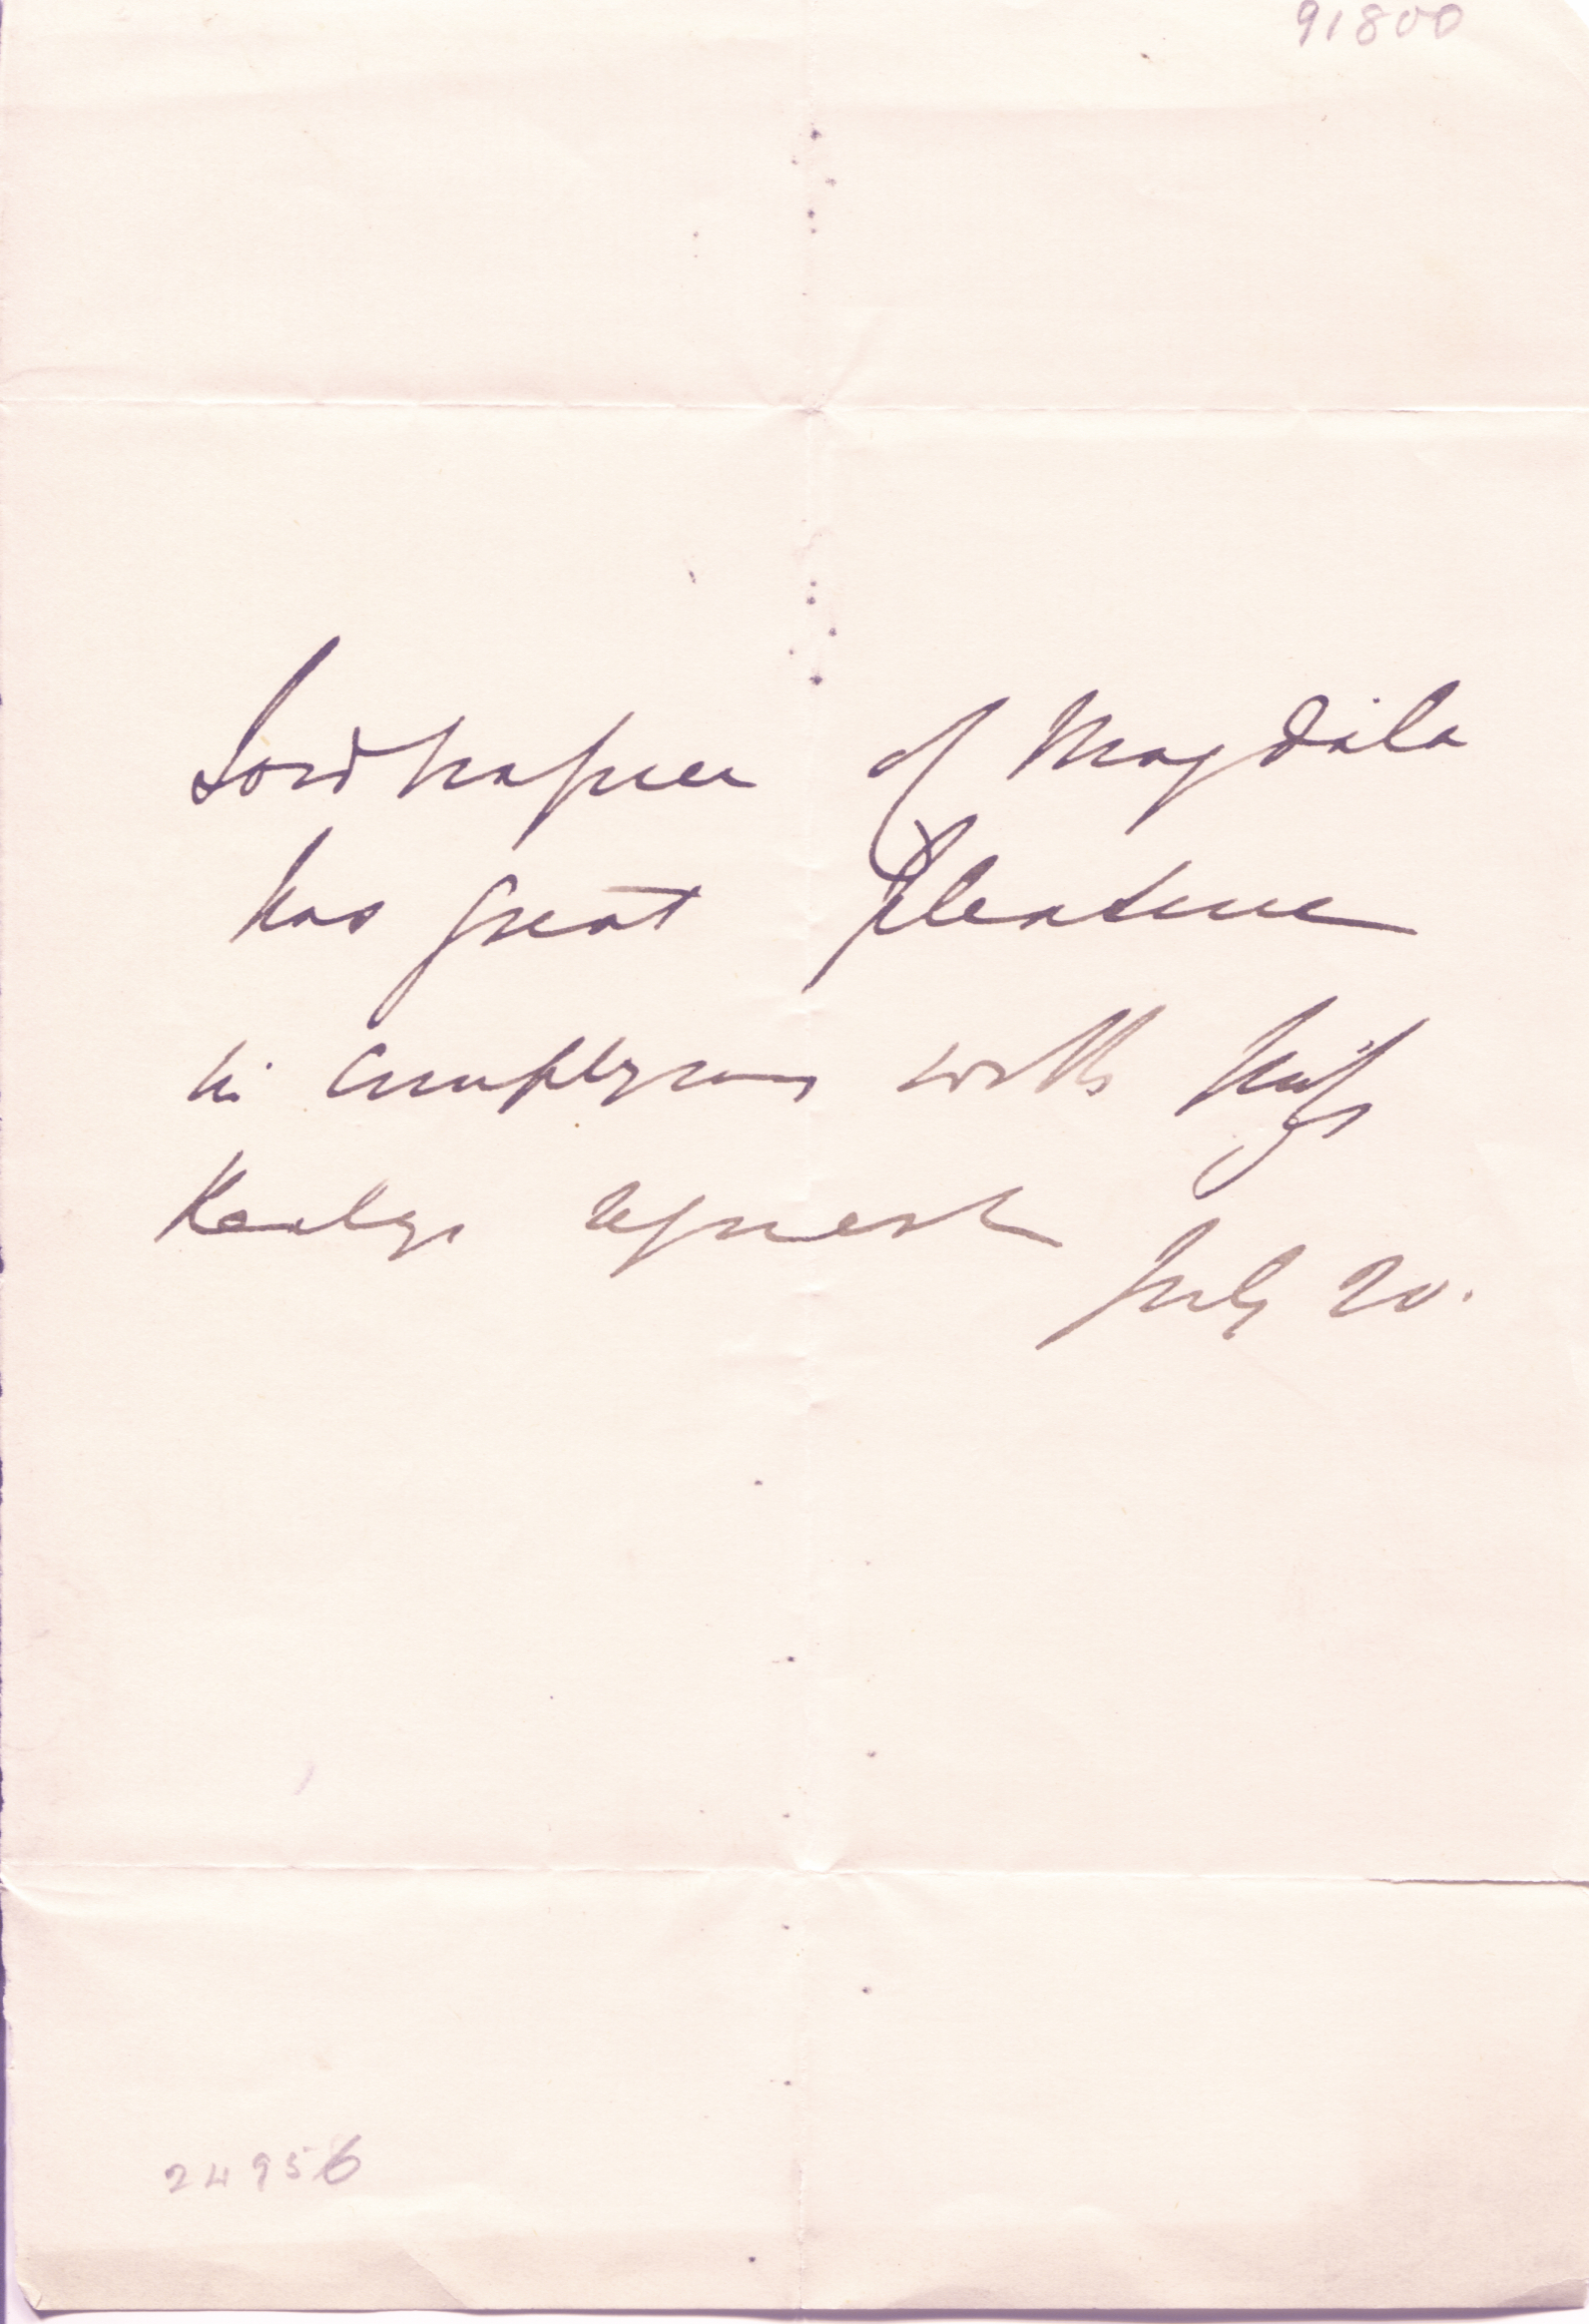 91800
Lord Napier of Magdala
has great pleasure
in complying with
request
July 20.
24956